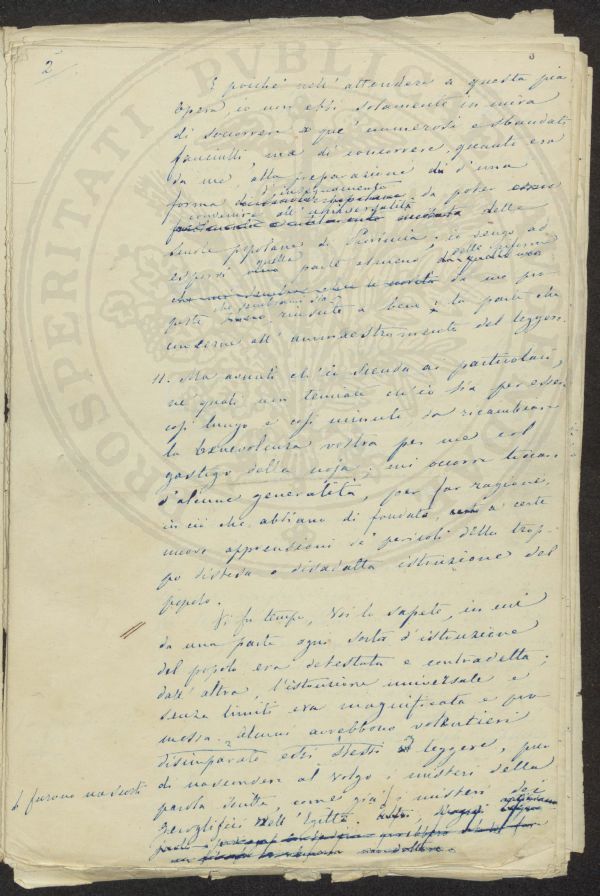 2
3
E poichè nell' attendere a questa pia
Opera, io non ebbi solamente in mira
di soccorrere a que' numerosi e sbandati
fanciulli, ma di concorrere, quanto era
da me, alla preparazione di d'una
forma d'insegnamento da poter
convenire all' universalità delle
scuole popolane di Provincia; io vengo ad
esporvi quella parte almeno delle riforme
da me pro
poste che sembrommi sia riuscita a bene; la parte che
concerne all' ammaestramento del leggere.
11. Ma avanti ch'io scenda ai particolari,
ne' quali non temiate ch'io sia per essere
così lungo e così minuto, da ricambiare
la benevolenza vostra per me col
gastigo della noja; mi occorre toccare
d'alcune generalità, per far ragione,
in ciò che abbiano di fondato, a certe
nuove apprensioni de' pericoli della trop-
po distesa o disadatta istruzione del
popolo.
Vi fu tempo, Voi lo sapete, in cui
da una parte ogni sorta d'istruzione
del popolo era detestata e contradetta;
dall' altra, l'istruzione universale e
senza limiti era magnificata e pro
messa. Alcuni avrebbono volentieri
disimparato essi stessi a leggere, pur
di nascondere al volgo i misteri della
parola scritta, come già i misteri dei
Geroglifici dell' Egitto.
furono nascosti